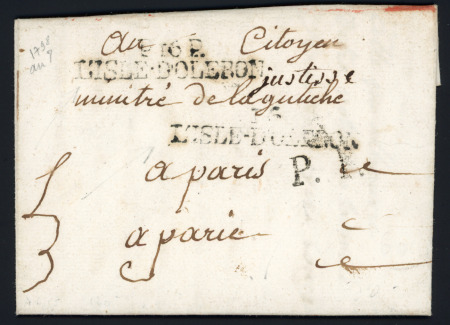 1798
an 7
au Citoyen
P. 16 P.
L'ISLE-D'OLERON
justisse
ministré de la gutiche
L'ISLE-D'OLERON
a paris
P. P.
a parie